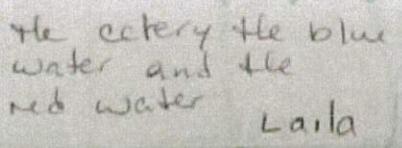 the cctery the blue
water and the
red water
Laila